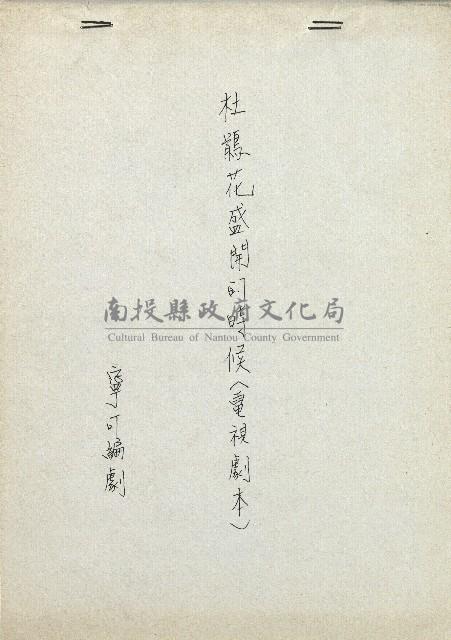 杜鵑花盛開的時候（電視劇本）
寧可編劇
南投縣政府文化局
Cultural Bureau of Nantou County Government